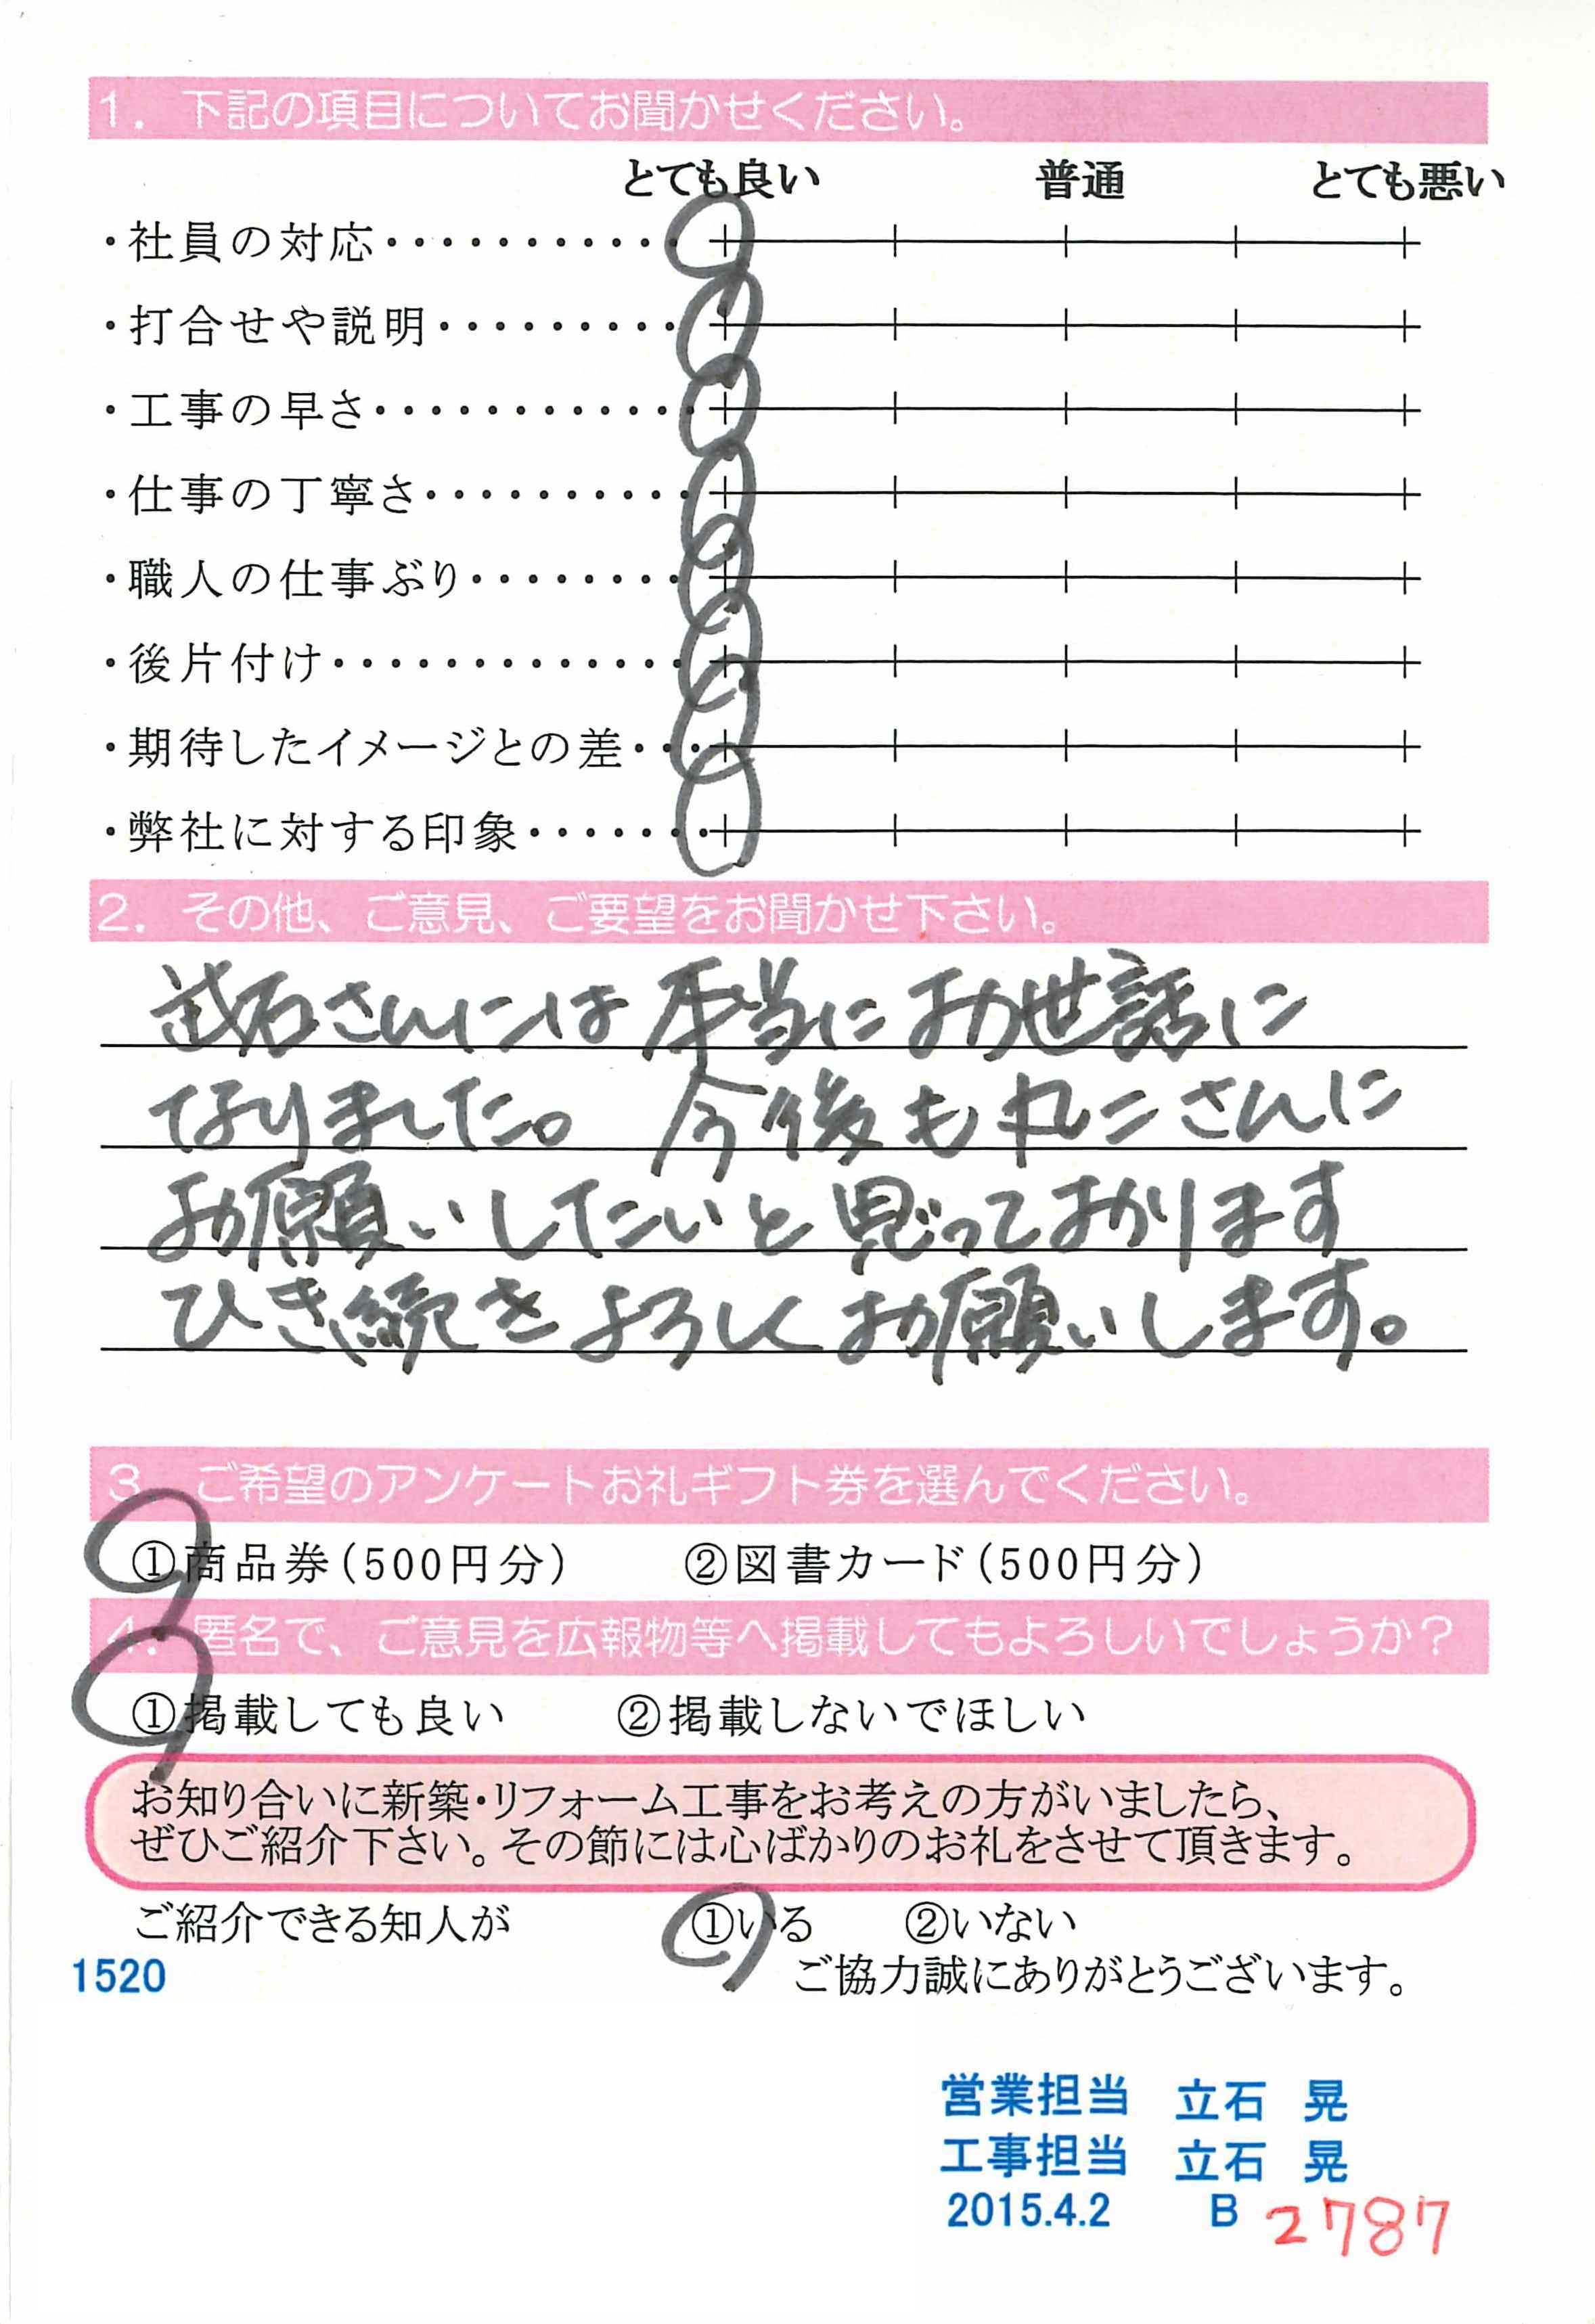 1. 下記の項目についてお聞かせください。
とても良い 普通 とても悪い
・社員の対応・・・・・・・・・・・
・打合せや説明・・・・・・・・・
・工事の早さ・・・・・・・・・・・・
・仕事の丁寧さ・・・・・・・・・・
・職人の仕事ぶり・・・・・・・・
・後片付け・・・・・・・・・・・・・
・期待したイメージとの差・・・
・弊社に対する印象・・・・・・・
2. その他、ご意見、ご要望をお聞かせ下さい。
武石さんには本当にお世話に
なりました。 今後も丸二さんに
お願いしたいと思っております
ひき続きよろしくお願いします。
3. ご希望のアンケートお礼ギフト券を選んでください。
①商品券(500円分) ②図書カード(500円分)
4. 匿名で、ご意見を広報物等へ掲載してもよろしいでしょうか?
①掲載しても良い ②掲載しないでほしい
お知り合いに新築・リフォーム工事をお考えの方がいましたら、
ぜひご紹介下さい。その節には心ばかりのお礼をさせて頂きます。
ご紹介できる知人が ①いる ②いない
1520 ご協力誠にありがとうございます。
営業担当 立石 晃
工事担当 立石 晃
2015.4.2 B 2787